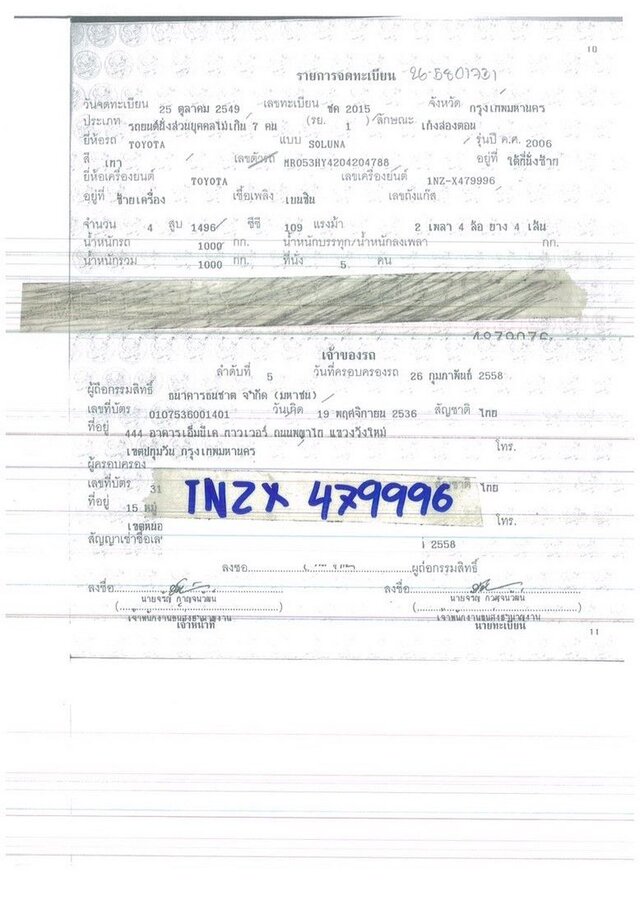 10
รายการจดทะเบียน 26-5801731
วันจดทะเบียน 25 ตุลาคม 2549 เลขทะเบียน ชค 2015 จังหวัด กรุงเทพมหานคร
ประเภท รถยนต์นั่งส่วนบุคคลไม่เกิน 7 คน (รย. 1 ) ลักษณะ เก๋งสองตอน
ยี่ห้อรถ TOYOTA แบบ SOLUNA รุ่นปี ค.ศ. 2006
สี เทา เลขตัวรถ MR053HY4204204788 อยู่ที่ ใต้ที่นั่งซ้าย
ยี่ห้อเครื่องยนต์ TOYOTA เลขเครื่องยนต์ 1NZ-X479996
อยู่ที่ ซ้ายเครื่อง เชื้อเพลิง เบนซิน เลขถังแก๊ส
จำนวน 4 สูบ 1496 ซีซี 109 แรงม้า 2 เพลา 4 ล้อ ยาง 4 เส้น
น้ำหนักรถ 1000 กก. น้ำหนักบรรทุก/น้ำหนักลงเพลา กก.
น้ำหนักรวม 1000 กก. ที่นั่ง 5 คน
เจ้าของรถ
ลำดับที่ 5 วันที่ครอบครองรถ 26 กุมภาพันธ์ 2558
ผู้ถือกรรมสิทธิ์ ธนาคารธนชาต จำกัด (มหาชน)
เลขที่บัตร 0107536001401 วันเกิด 19 พฤศจิกายน 2536 สัญชาติ ไทย
ที่อยู่ 444 อาคารเอ็มบีเค ทาวเวอร์ ถนนพญาไท แขวงวังใหม่
เขตปทุมวัน กรุงเทพมหานคร โทร.
ผู้ครอบครอง
เลขที่บัตร 31 สัญชาติ ไทย
1NZX 479996
ที่อยู่ 15 หมู่ โทร.
สัญญาเช่าซื้อเลข 2558
ลงชื่อ ผู้ถือกรรมสิทธิ์
ลงชื่อ ลงชื่อ
เจ้าพนักงานขนส่งชำนาญงาน เจ้าพนักงานขนส่งชำนาญงาน
เจ้าหน้าที่ นายทะเบียน
11